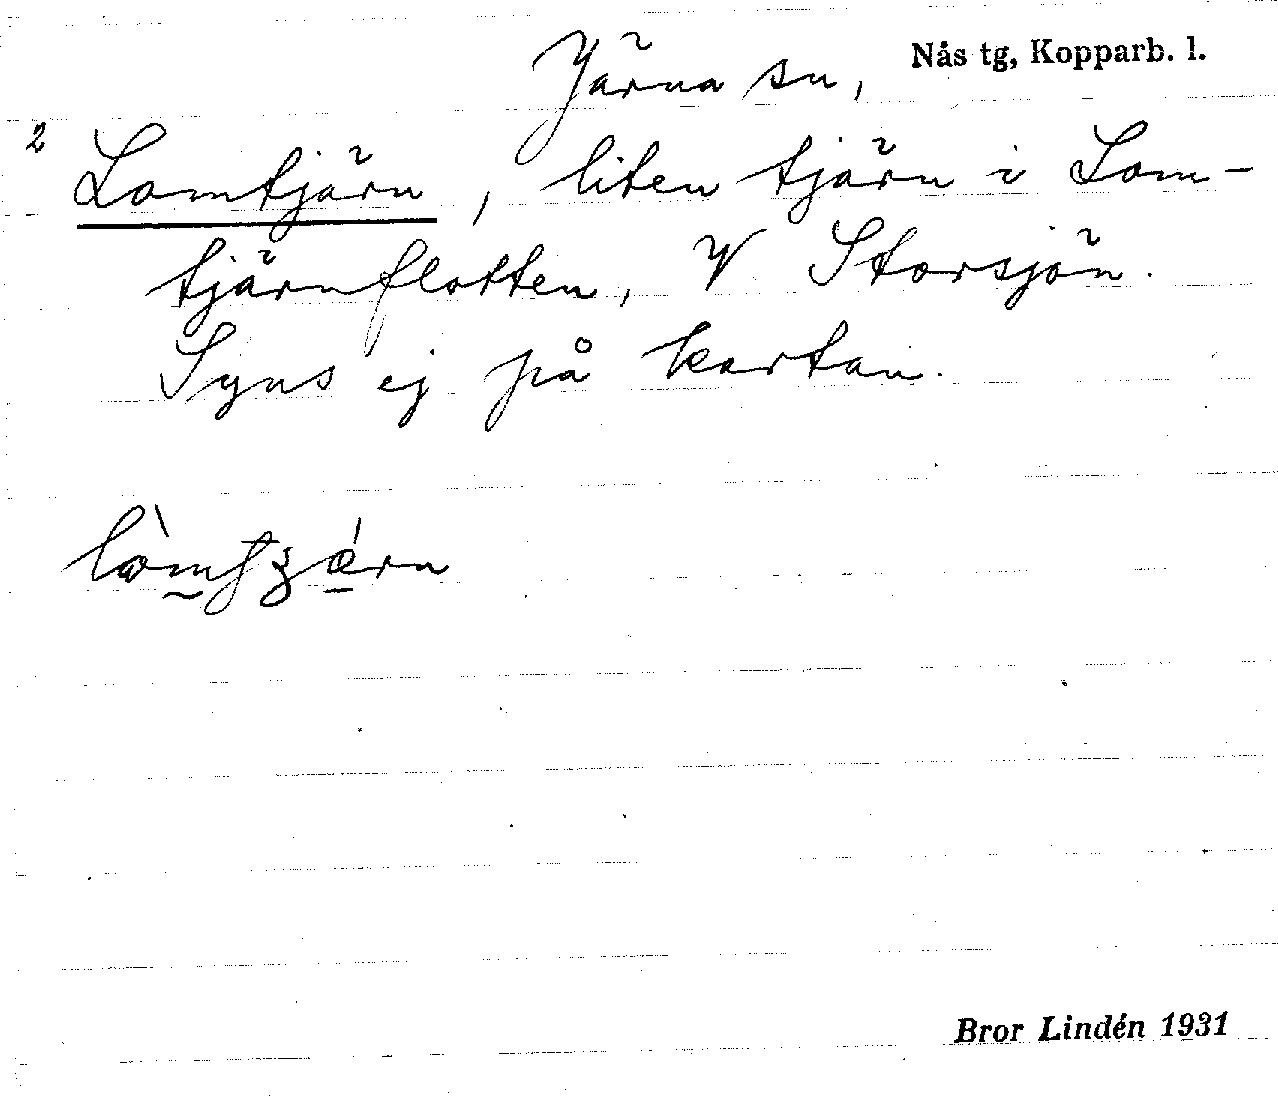 Järna sn, Nås tg, Kopparb. l.
2 Lomtjärn, liten tjärn i Lom-
tjärnflotten, V Storsjön.
Syns ej på kartan.
Bror Lindén 1931